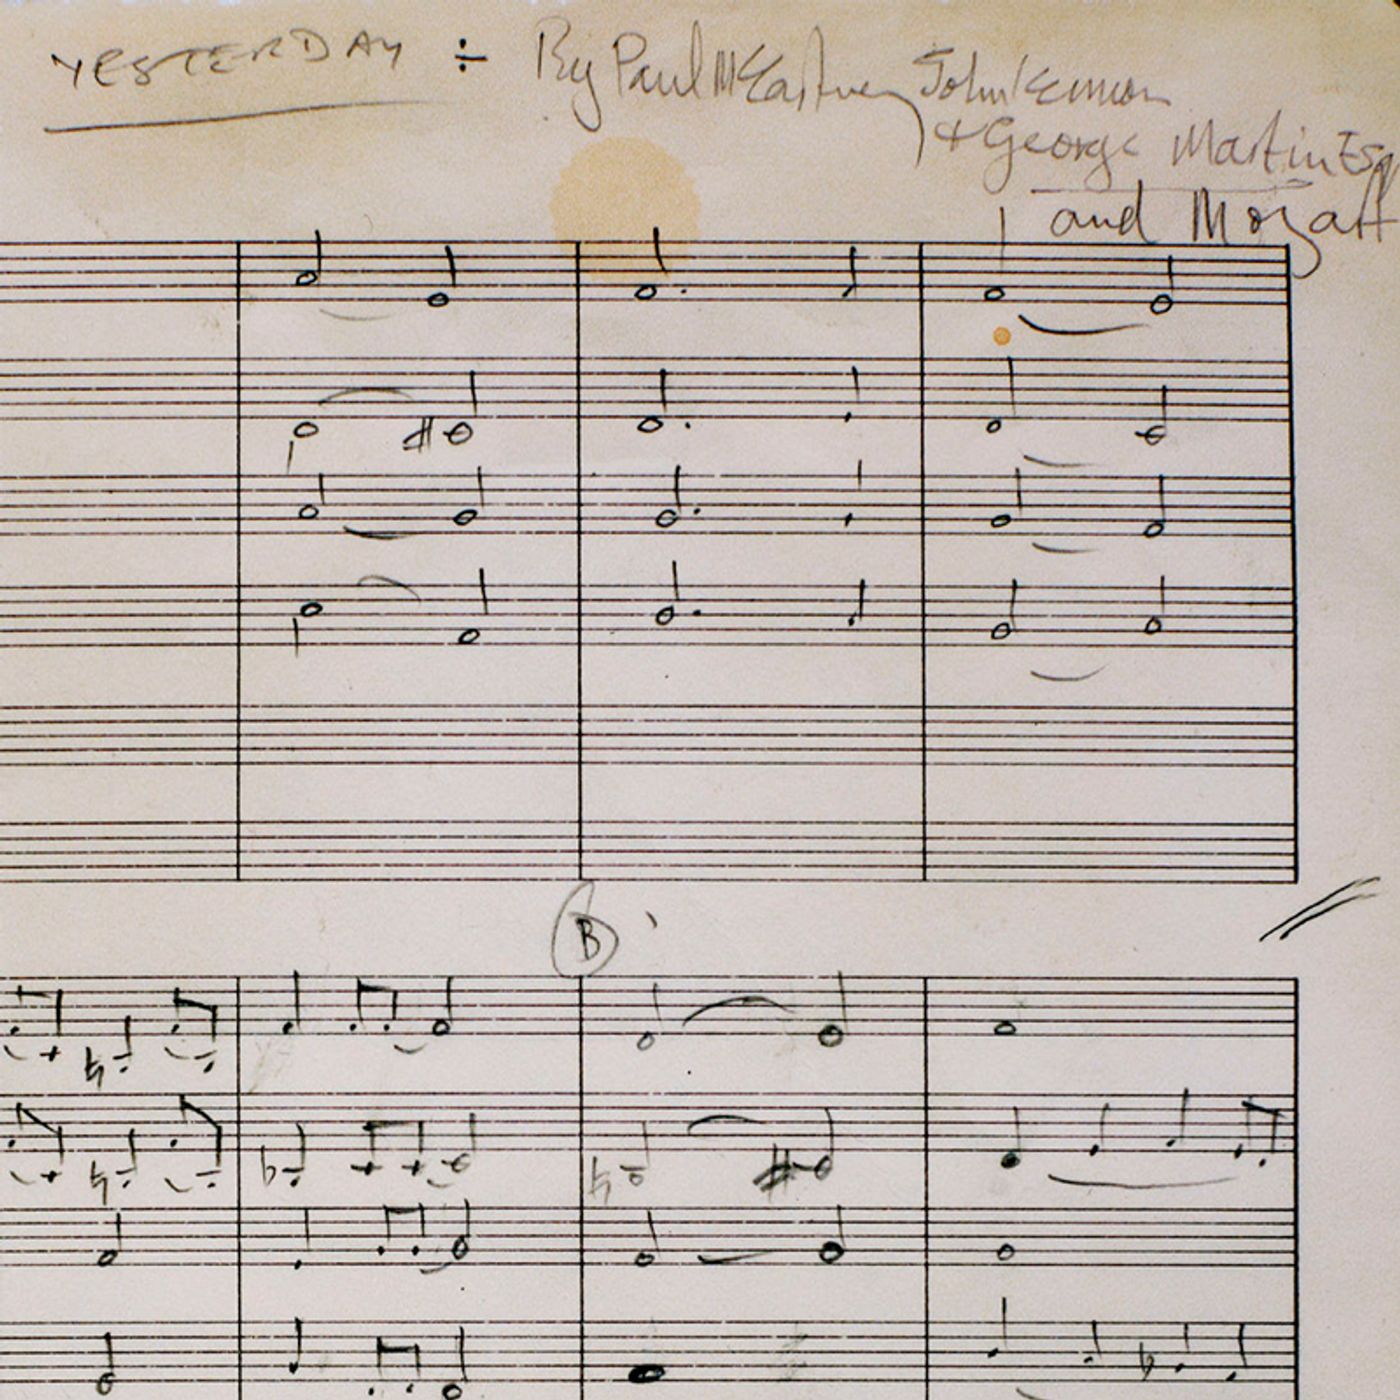 YESTERDAY ÷ By Paul McCartney John Lennon
& George Martin Esq
and Mozart
B